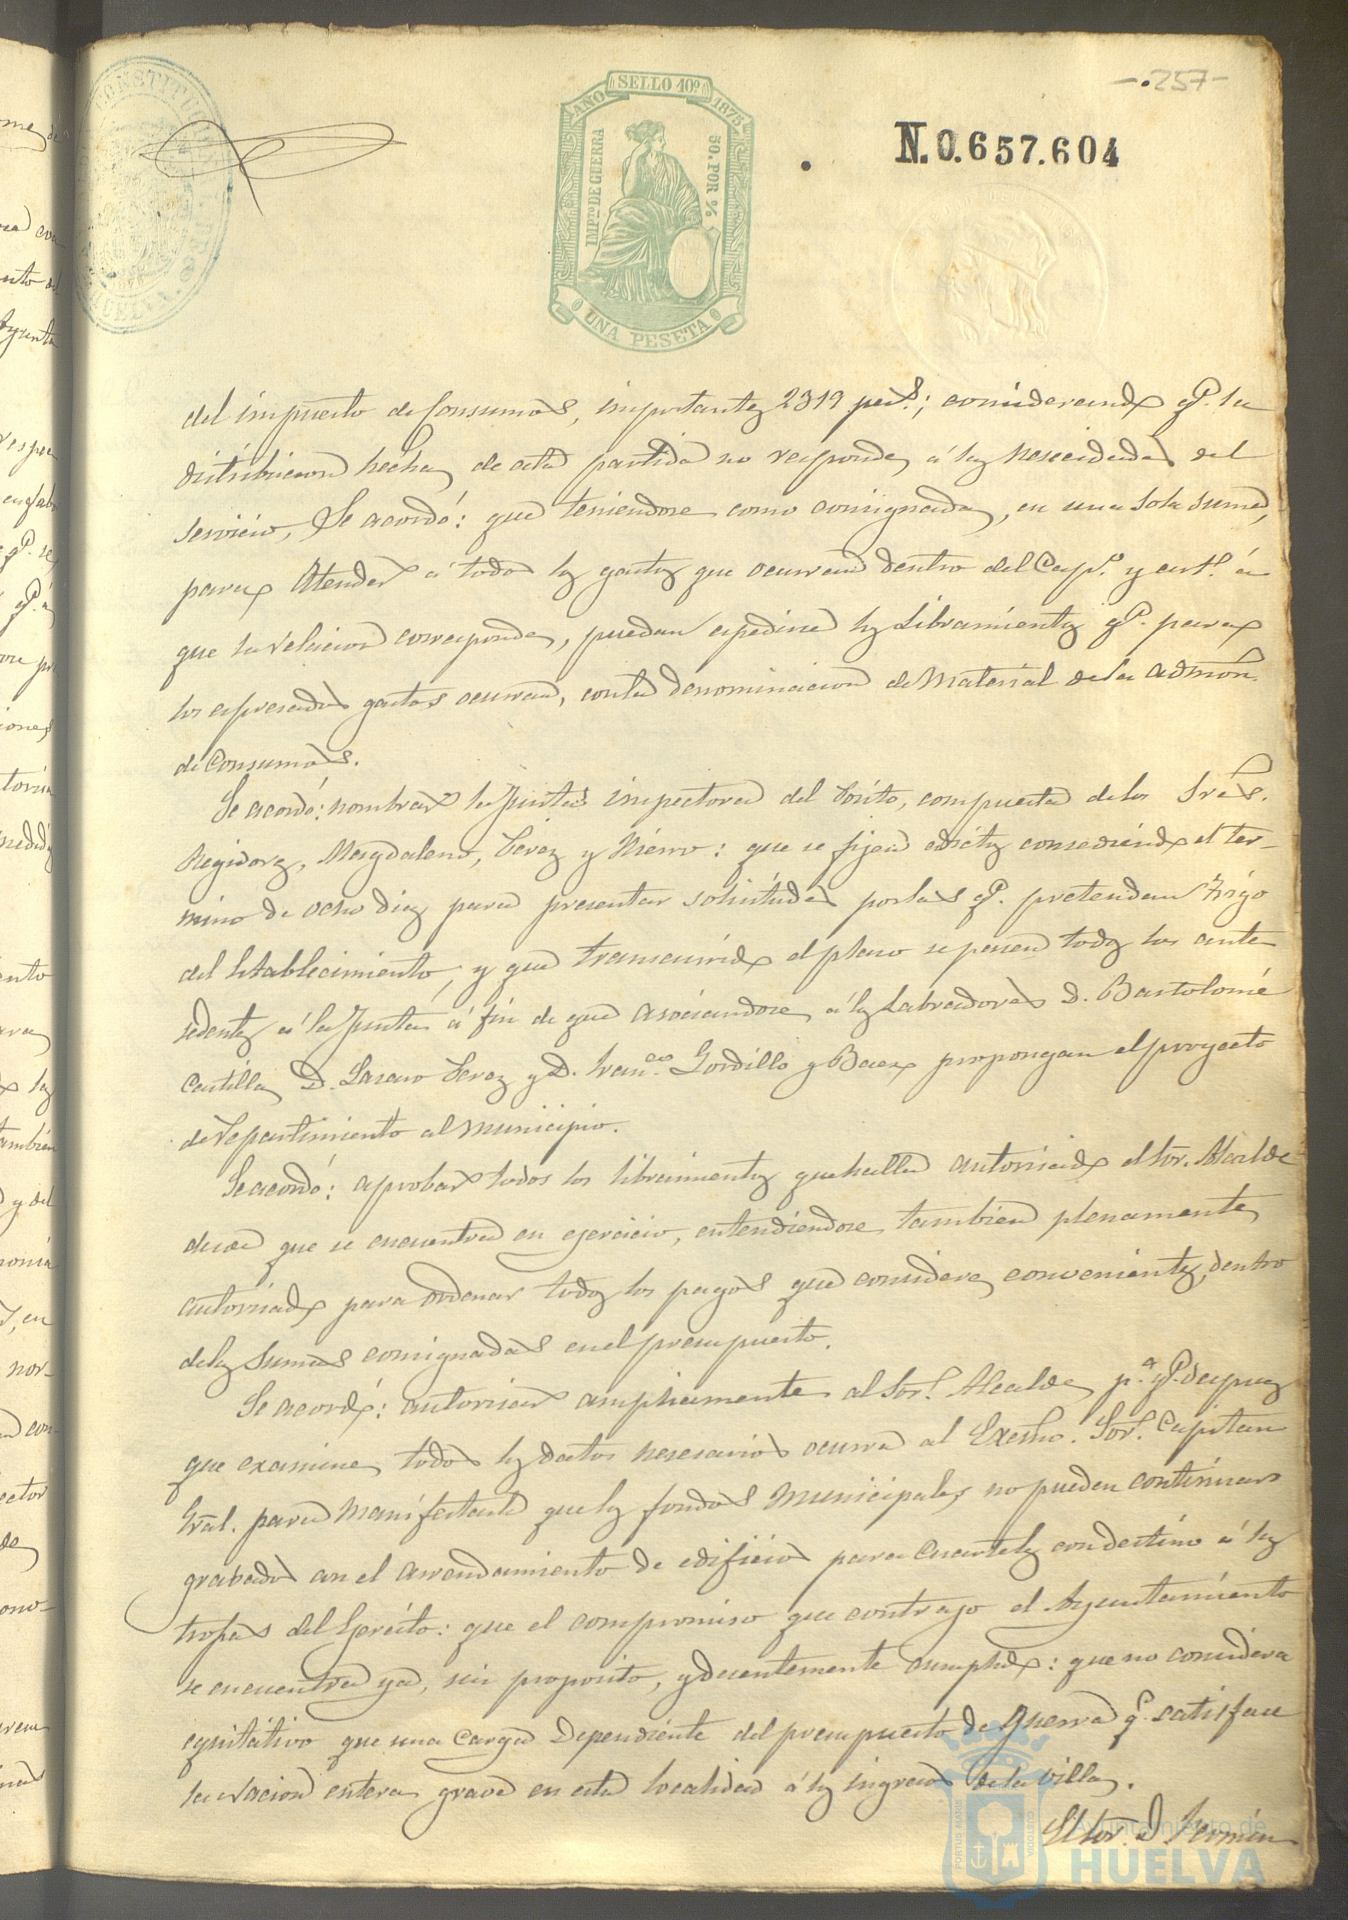 257
AÑO SELLO 10º 1875
IMPTO DE GUERRA
50 POR %
UNA PESETA
N.0.657.604
CONSTITUCIONAL
HUELVA
del impuesto de Consumos, importantes 2319 pests.; considerando qe. la
distribucion hecha de esta partida no responde á las nesecidades del
servicio, Se acordó: que teniendose como consignada, en una sola suma,
para atender á todos los gastos que ocurran dentro del Capo. y arto. á
que la relacion corresponde, puedan espedirse los Libramientos qe. para
los espresados gastos ocurran, con la denominacion de Material de la admon.
de Consumos.
Se acordó: nombrar la Junta inspectora del Pósito, compuesta de los Sres.
Regidores, Magdaleno, Perez y Hierro: que se fijen edictos consediendo el ter-
mino de ocho dias para presentar solicitudes por las qe. pretendan trigo
del Establecimiento, y que transcurrido el plaso se pasen todos los ante
sedentes á la Junta á fin de que asociandose á los Labradores D. Bartolomé
Castilla, D. Lasaro Perez y D. Franco. Gordillo y Baez propongan el proyecto
de repartimiento al municipio.
Se acordó: aprobar todos los libramientos que halla autorisado el Sor. Alcalde
desde que se encuentra en ejercicio, entendiendose tambien plenamente
autorisado para ordenar todos los pagos que considere convenientes, dentro
de las sumas consignadas en el presupuesto.
Se acordó: autorisar ampliamente al Sor. Alcalde pa. qe. despues
que examine todos los datos nesesarios ocurra al Exsmo. Sor. Capitan
Gral. para manifestarle que los fondos municipales no pueden continuar
grabados en el arrendamiento de edificios para cuarteles con destino á las
tropas del Ejercito: que el compromiso que contrajo el Ayuntamiento
se encuentra ya, sin proposito, y desentemente cumplido: que no considera
equitativo que una carga dependiente del presupuesto de Guerra qe. satisface
la Nacion entera grave en esta localidad á los ingresos de la villa.
El Sor. D. Fermin
Ayuntamiento de
HUELVA